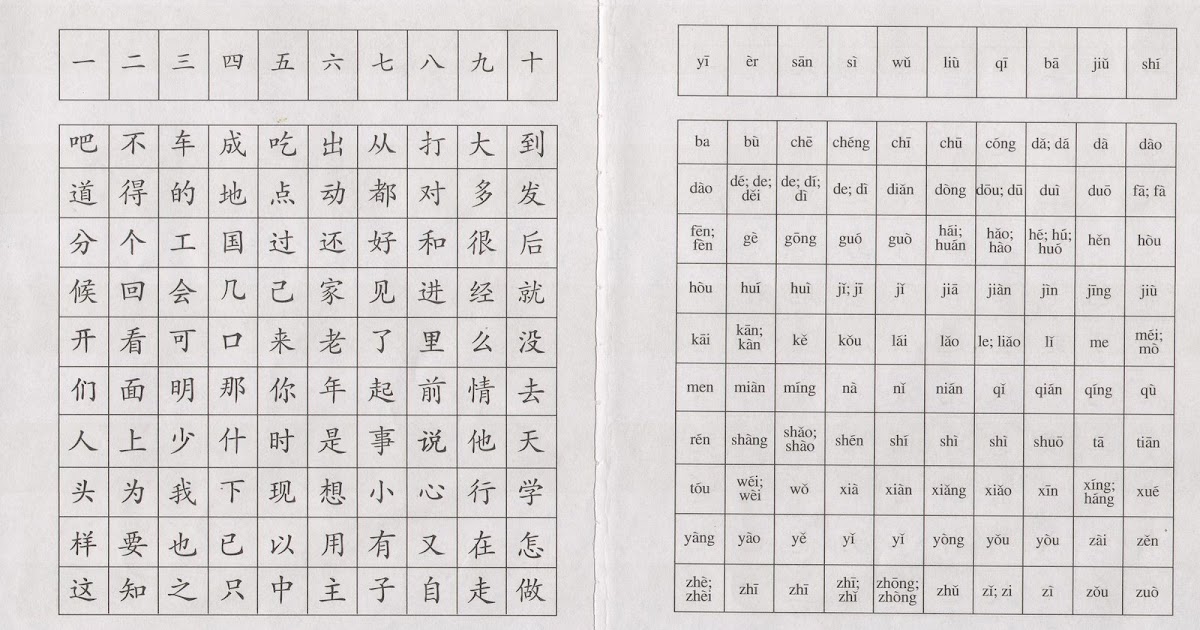 一 二 三 四 五 六 七 八 九 十
吧 不 车 成 吃 出 从 打 大 到
道 得 的 地 点 动 都 对 多 发
分 个 工 国 过 还 好 和 很 后
候 回 会 几 己 家 见 进 经 就
开 看 可 口 来 老 了 里 么 没
们 面 明 那 你 年 起 前 情 去
人 上 少 什 时 是 事 说 他 天
头 为 我 下 现 想 小 心 行 学
样 要 也 已 以 用 有 又 在 怎
这 知 之 只 中 主 子 自 走 做
yī èr sān sì wǔ liù qī bā jiǔ shí
ba bù chē chéng chī chū cóng dǎ; dá dà dào
dào dé; de; děi de; dí; dì de; dì diǎn dòng dōu; dū duì duō fā; fà
fēn; fèn gè gōng guó guò hāi; huán hǎo; hào hé; hú; huó hěn hòu
hòu huí huì jǐ; jī jǐ jiā jiàn jìn jīng jiù
kāi kān; kàn kě kǒu lái lǎo le; liǎo lǐ me méi; mò
men miàn míng nà nǐ nián qǐ qián qíng qù
rén shàng shǎo; shào shén shí shì shì shuō tā tiān
tóu wéi; wèi wǒ xià xiàn xiǎng xiǎo xīn xíng; háng xué
yàng yào yě yǐ yǐ yòng yǒu yòu zài zěn
zhè; zhèi zhī zhī zhī; zhǐ zhōng; zhòng zhǔ zǐ; zi zì zǒu zuò